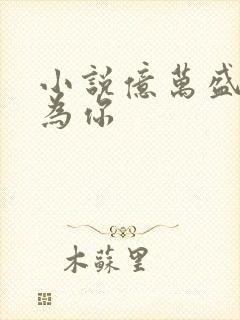 小說億萬盛
為你
木蘇里